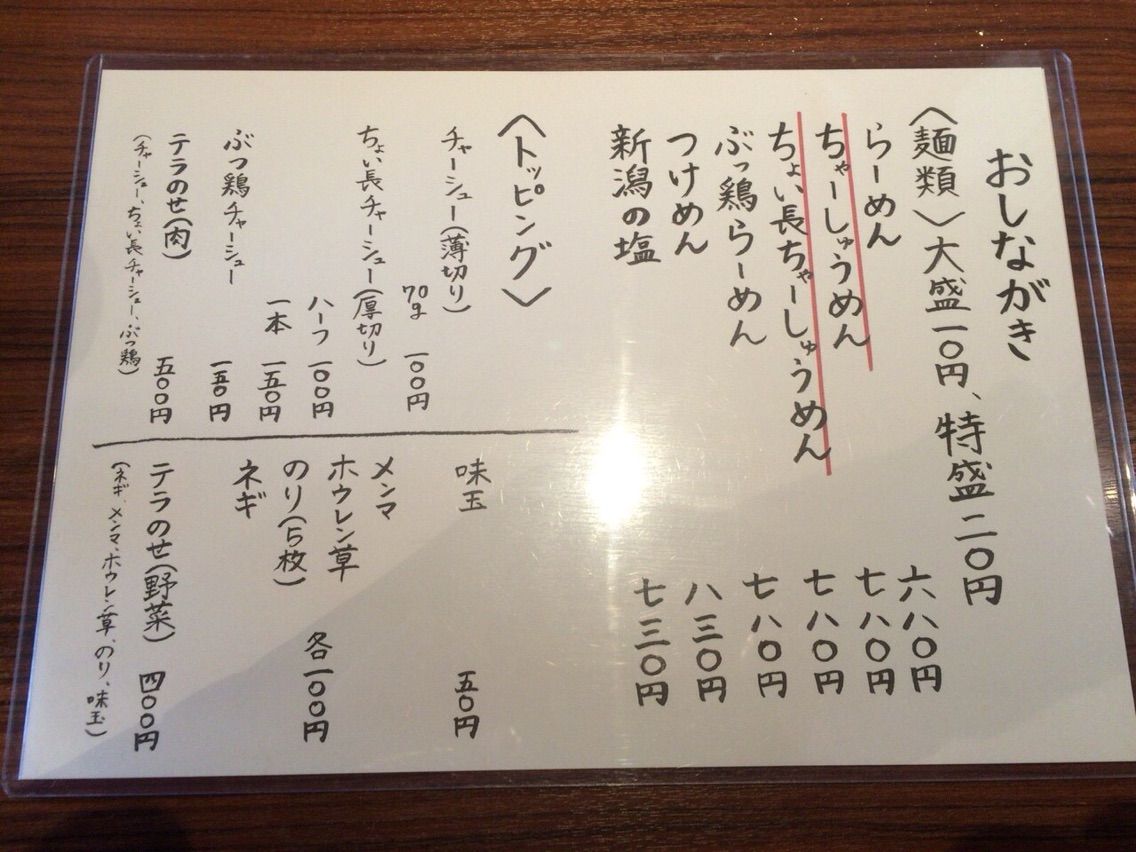 おしながき
〈麺類〉大盛一〇円、特盛二〇円
らーめん 六八〇円
ちゃーしゅうめん 七八〇円
ちょい長ちゃーしゅうめん 七八〇円
ぶっ鶏らーめん 七八〇円
つけめん 八三〇円
新潟の塩 七三〇円
〈トッピング〉
チャーシュー(薄切り)
70g 一〇〇円
ちょい長チャーシュー(厚切り)
ハーフ 一〇〇円
一本 一五〇円
ぶっ鶏チャーシュー
一五〇円
テラのせ(肉) 五〇〇円
(チャーシュー、ちょい長チャーシュー、ぶっ鶏)
味玉 五〇円
メンマ
ホウレン草
のり(5枚) 各一〇〇円
ネギ
テラのせ(野菜) 四〇〇円
(ネギ、メンマ、ホウレン草、のり、味玉)